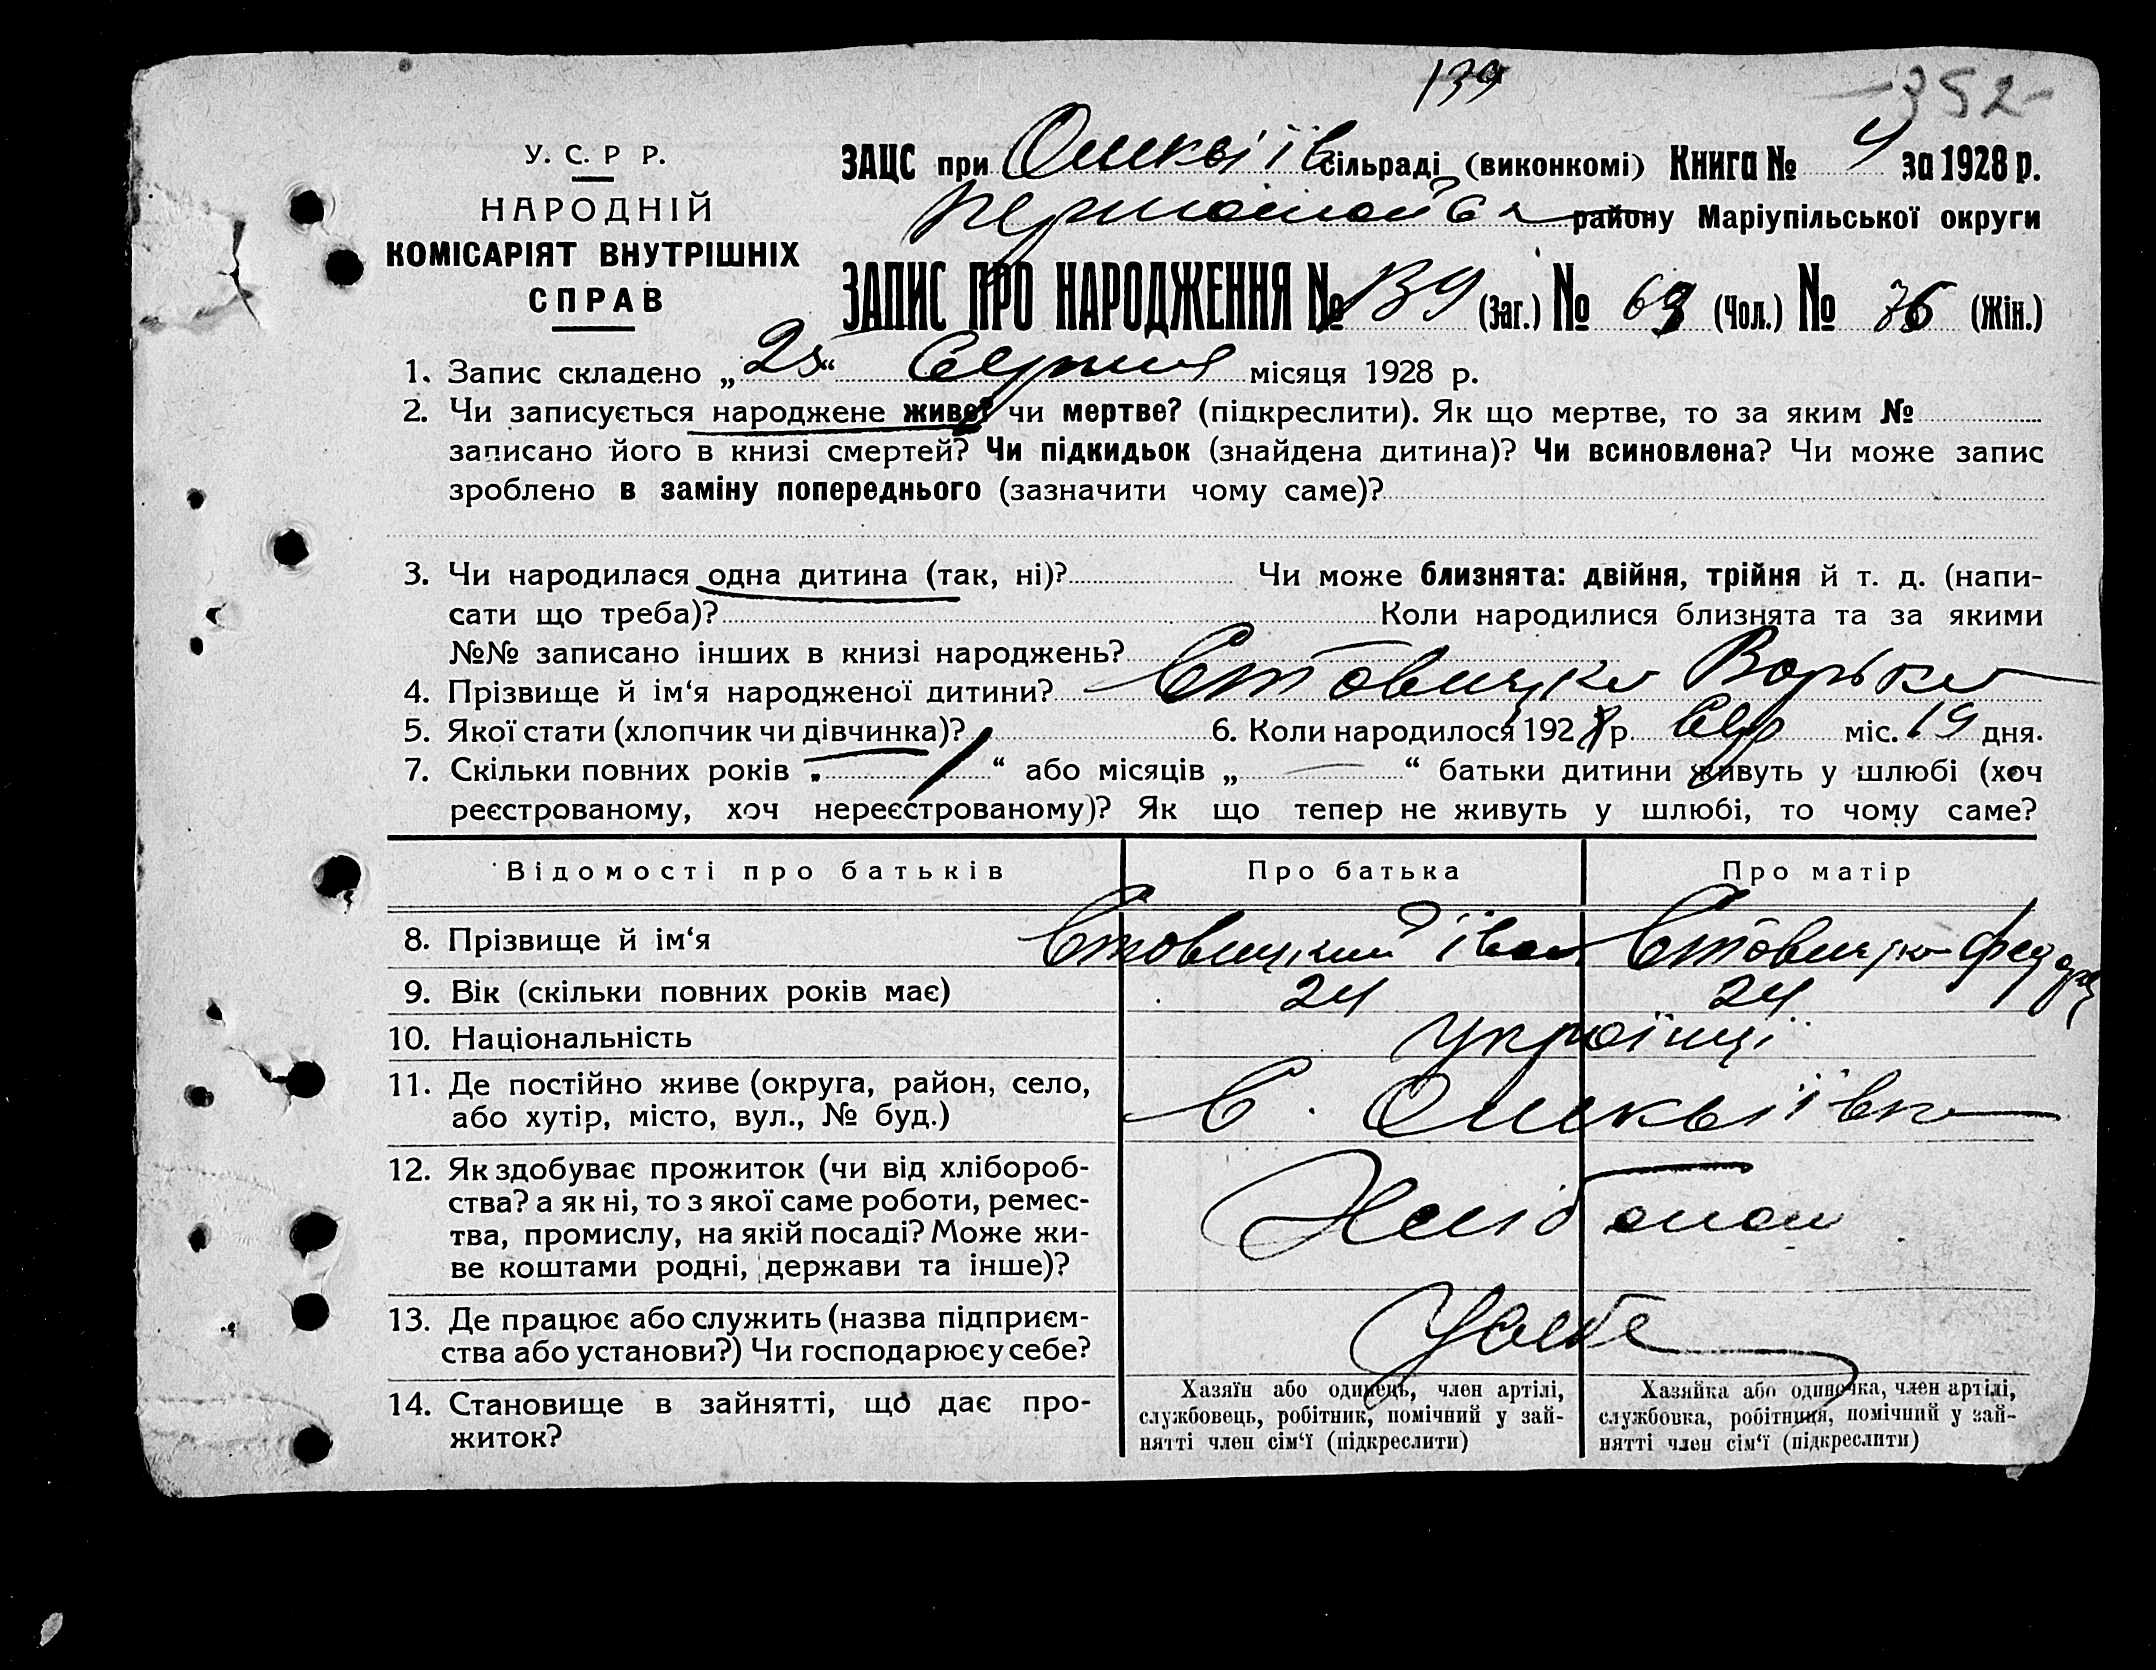 139
-352-
У. С. Р Р.
НАРОДНІЙ
КОМІСАРІЯТ ВНУТРІШНІХ
СПРАВ
ЗАЦС при сільраді (виконкомі) Книга № 4 за 1928 р.
району Маріупільської округи
ЗАПИС ПРО НАРОДЖЕННЯ № 139 (Заг.) № 63 (Чол.) № 76 (Жін.)
1. Запис складено „25“ Серпня місяця 1928 р.
2. Чи записується народжене живе? чи мертве? (підкреслити). Як що мертве, то за яким №
записано його в книзі смертей? Чи підкидьок (знайдена дитина)? Чи всиновлена? Чи може запис
зроблено в заміну попереднього (зазначити чому саме)?
3. Чи народилася одна дитина (так, ні)? Чи може близнята: двійня, трійня й т. д. (напи-
сати що треба)? Коли народилися близнята та за якими
№№ записано інших в книзі народжень?
4. Прізвище й ім‘я народженої дитини? Стовицька Варька
5. Якої стати (хлопчик чи дівчинка)? 6. Коли народилося 1928 р. Сер міс. 19 дня.
7. Скільки повних років „ 1 “ або місяців „ — “ батьки дитини живуть у шлюбі (хоч
реєстрованому, хоч нереєстрованому)? Як що тепер не живуть у шлюбі, то чому саме?
Відомості про батьків Про батька Про матір
8. Прізвище й ім‘я Стовицький Іван Стовицька
9. Вік (скільки повних років має) 24 24
10. Національність Українці
11. Де постійно живе (округа, район, село,
або хутір, місто, вул., № буд.) С.
12. Як здобуває прожиток (чи від хлібороб-
ства? а як ні, то з якої саме роботи, ремес-
тва, промислу, на якій посаді? Може жи-
ве коштами родні, держави та інше)?
13. Де працює або служить (назва підприєм-
ства або установи?) Чи господарює у себе? У себе
14. Становище в зайнятті, що дає про-
житок?
Хазяїн або одинець, член артілі,
службовець, робітник, помічний у зай-
нятті член сім‘ї (підкреслити)
Хазяйка або одиначка, член артілі,
службовка, робітниця, помічний у зай-
нятті член сім‘ї (підкреслити)